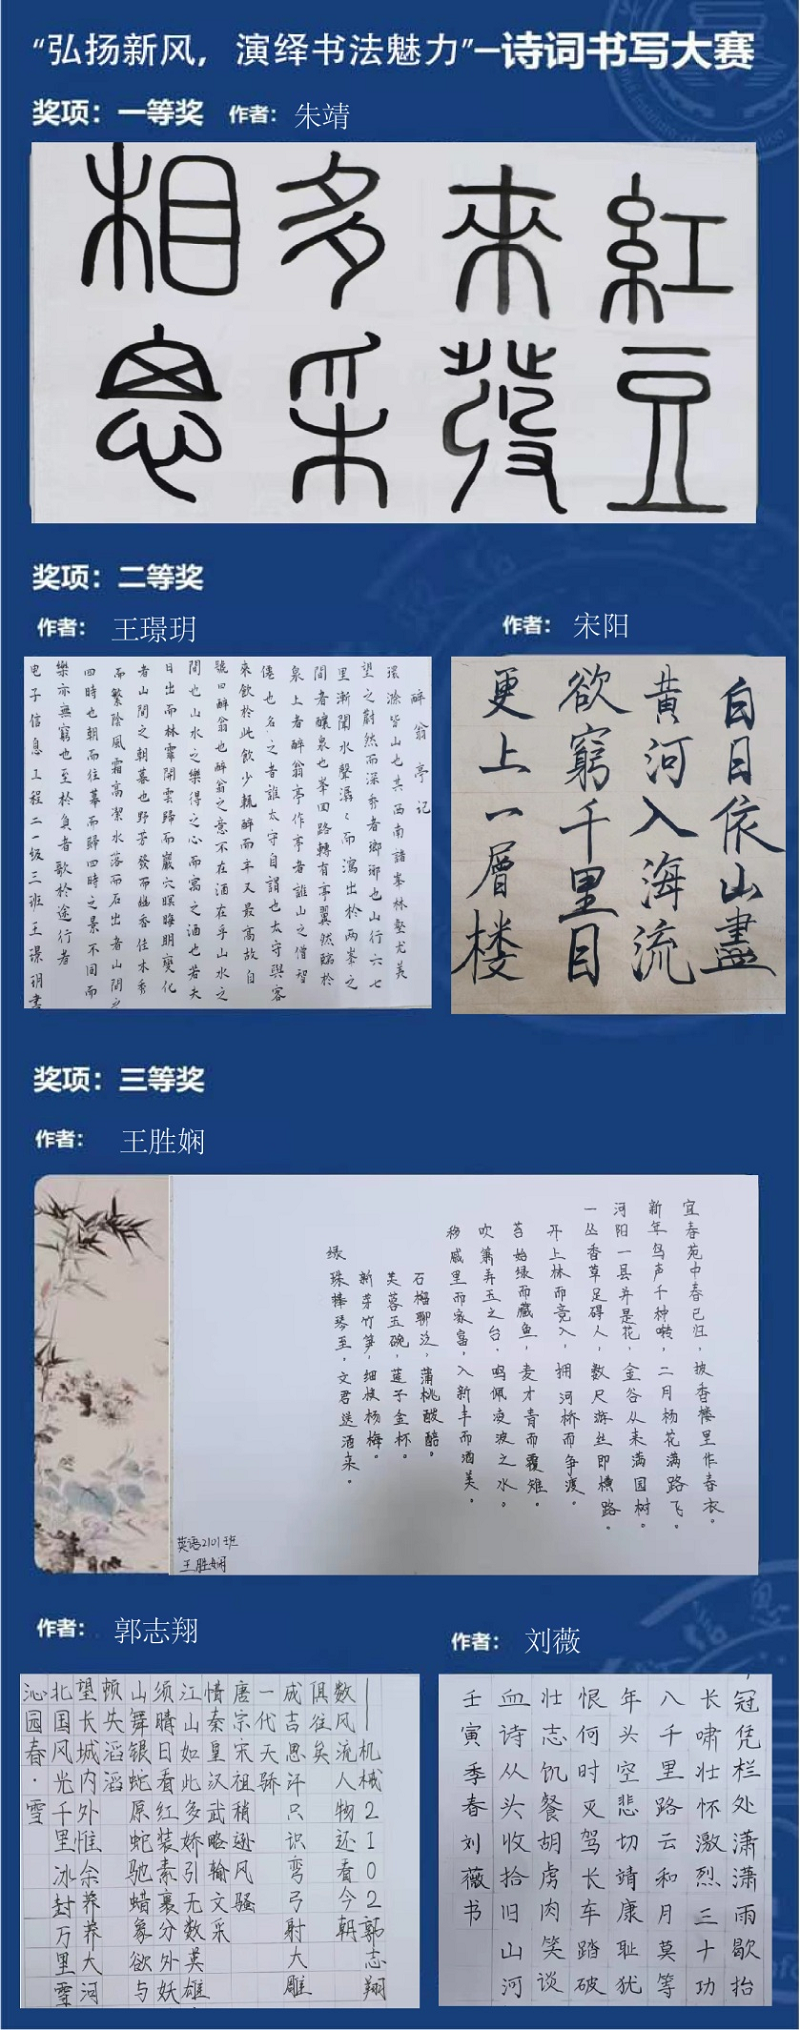 “弘扬新风，演绎书法魅力”—诗词书写大赛
奖项：一等奖 作者：朱靖
紅豆
來發
多采
相思
奖项：二等奖
作者：王璟玥
醉翁亭记
環滁皆山也其西南諸峯林壑尤美
望之蔚然而深秀者瑯瑯也山行六七
里漸聞水聲潺〻而瀉出於兩峯之
間者釀泉也峯回路轉有亭翼然臨於
泉上者醉翁亭作亭者誰山之僧智
僊也名之者誰太守自謂也太守與客
來飲於此飲少輒醉而年又最高故自
號曰醉翁也醉翁之意不在酒在乎山水之
間也山水之樂得之心而寓之酒也若夫
日出而林霏開雲歸而巖穴暝晦明變化
者山間之朝暮也野芳發而幽香佳木秀
而繁陰風霜高潔水落而石出者山間之
四時也朝而往暮而歸四時之景不同而
樂亦無窮也至於負者歌於途行者
电子信息工程二一级三班王璟玥書
作者：宋阳
白日依山盡
黄河入海流
欲窮千里目
更上一層楼
奖项：三等奖
作者：王胜娴
宜春苑中春已归，披香楼里作春衣。
新年鸟声千种啭，二月杨花满路飞。
河阳一县并是花，金谷从来满园树。
一丛香草足碍人，数尺游丝即横路。
开上林而竞入，拥河桥而争渡。
苔始绿而藏鱼，麦才青而覆雉。
吹箫弄玉之台，鸣佩凌波之水。
移戚里而家富，入新丰而酒美。
石榴聊泛，蒲桃酸醅。
芙蓉玉碗，莲子金杯。
新芽竹笋，细核杨梅。
绿珠捧琴至，文君送酒来。
英语2101班
王胜娴
作者：郭志翔
沁园春·雪
北国风光千里冰封万里雪
望长城内外惟余莽莽大河
顿失滔滔
山舞银蛇原蛇驰蜡象欲与
须晴日看红装素裹分外妖
江山如此多娇引无数英雄
情秦皇汉武略输文采
唐宗宋祖稍逊风骚
一代天骄
成吉思汗只识弯弓射大雕
俱往矣
数风流人物还看今朝
机械2102郭志翔
作者：刘薇
冠凭栏处潇潇雨歇抬
长啸壮怀激烈三十功
八千里路云和月莫等
年头空悲切靖康耻犹
恨何时灭驾长车踏破
壮志饥餐胡虏肉笑谈
血诗从头收拾旧山河
壬寅季春刘薇书